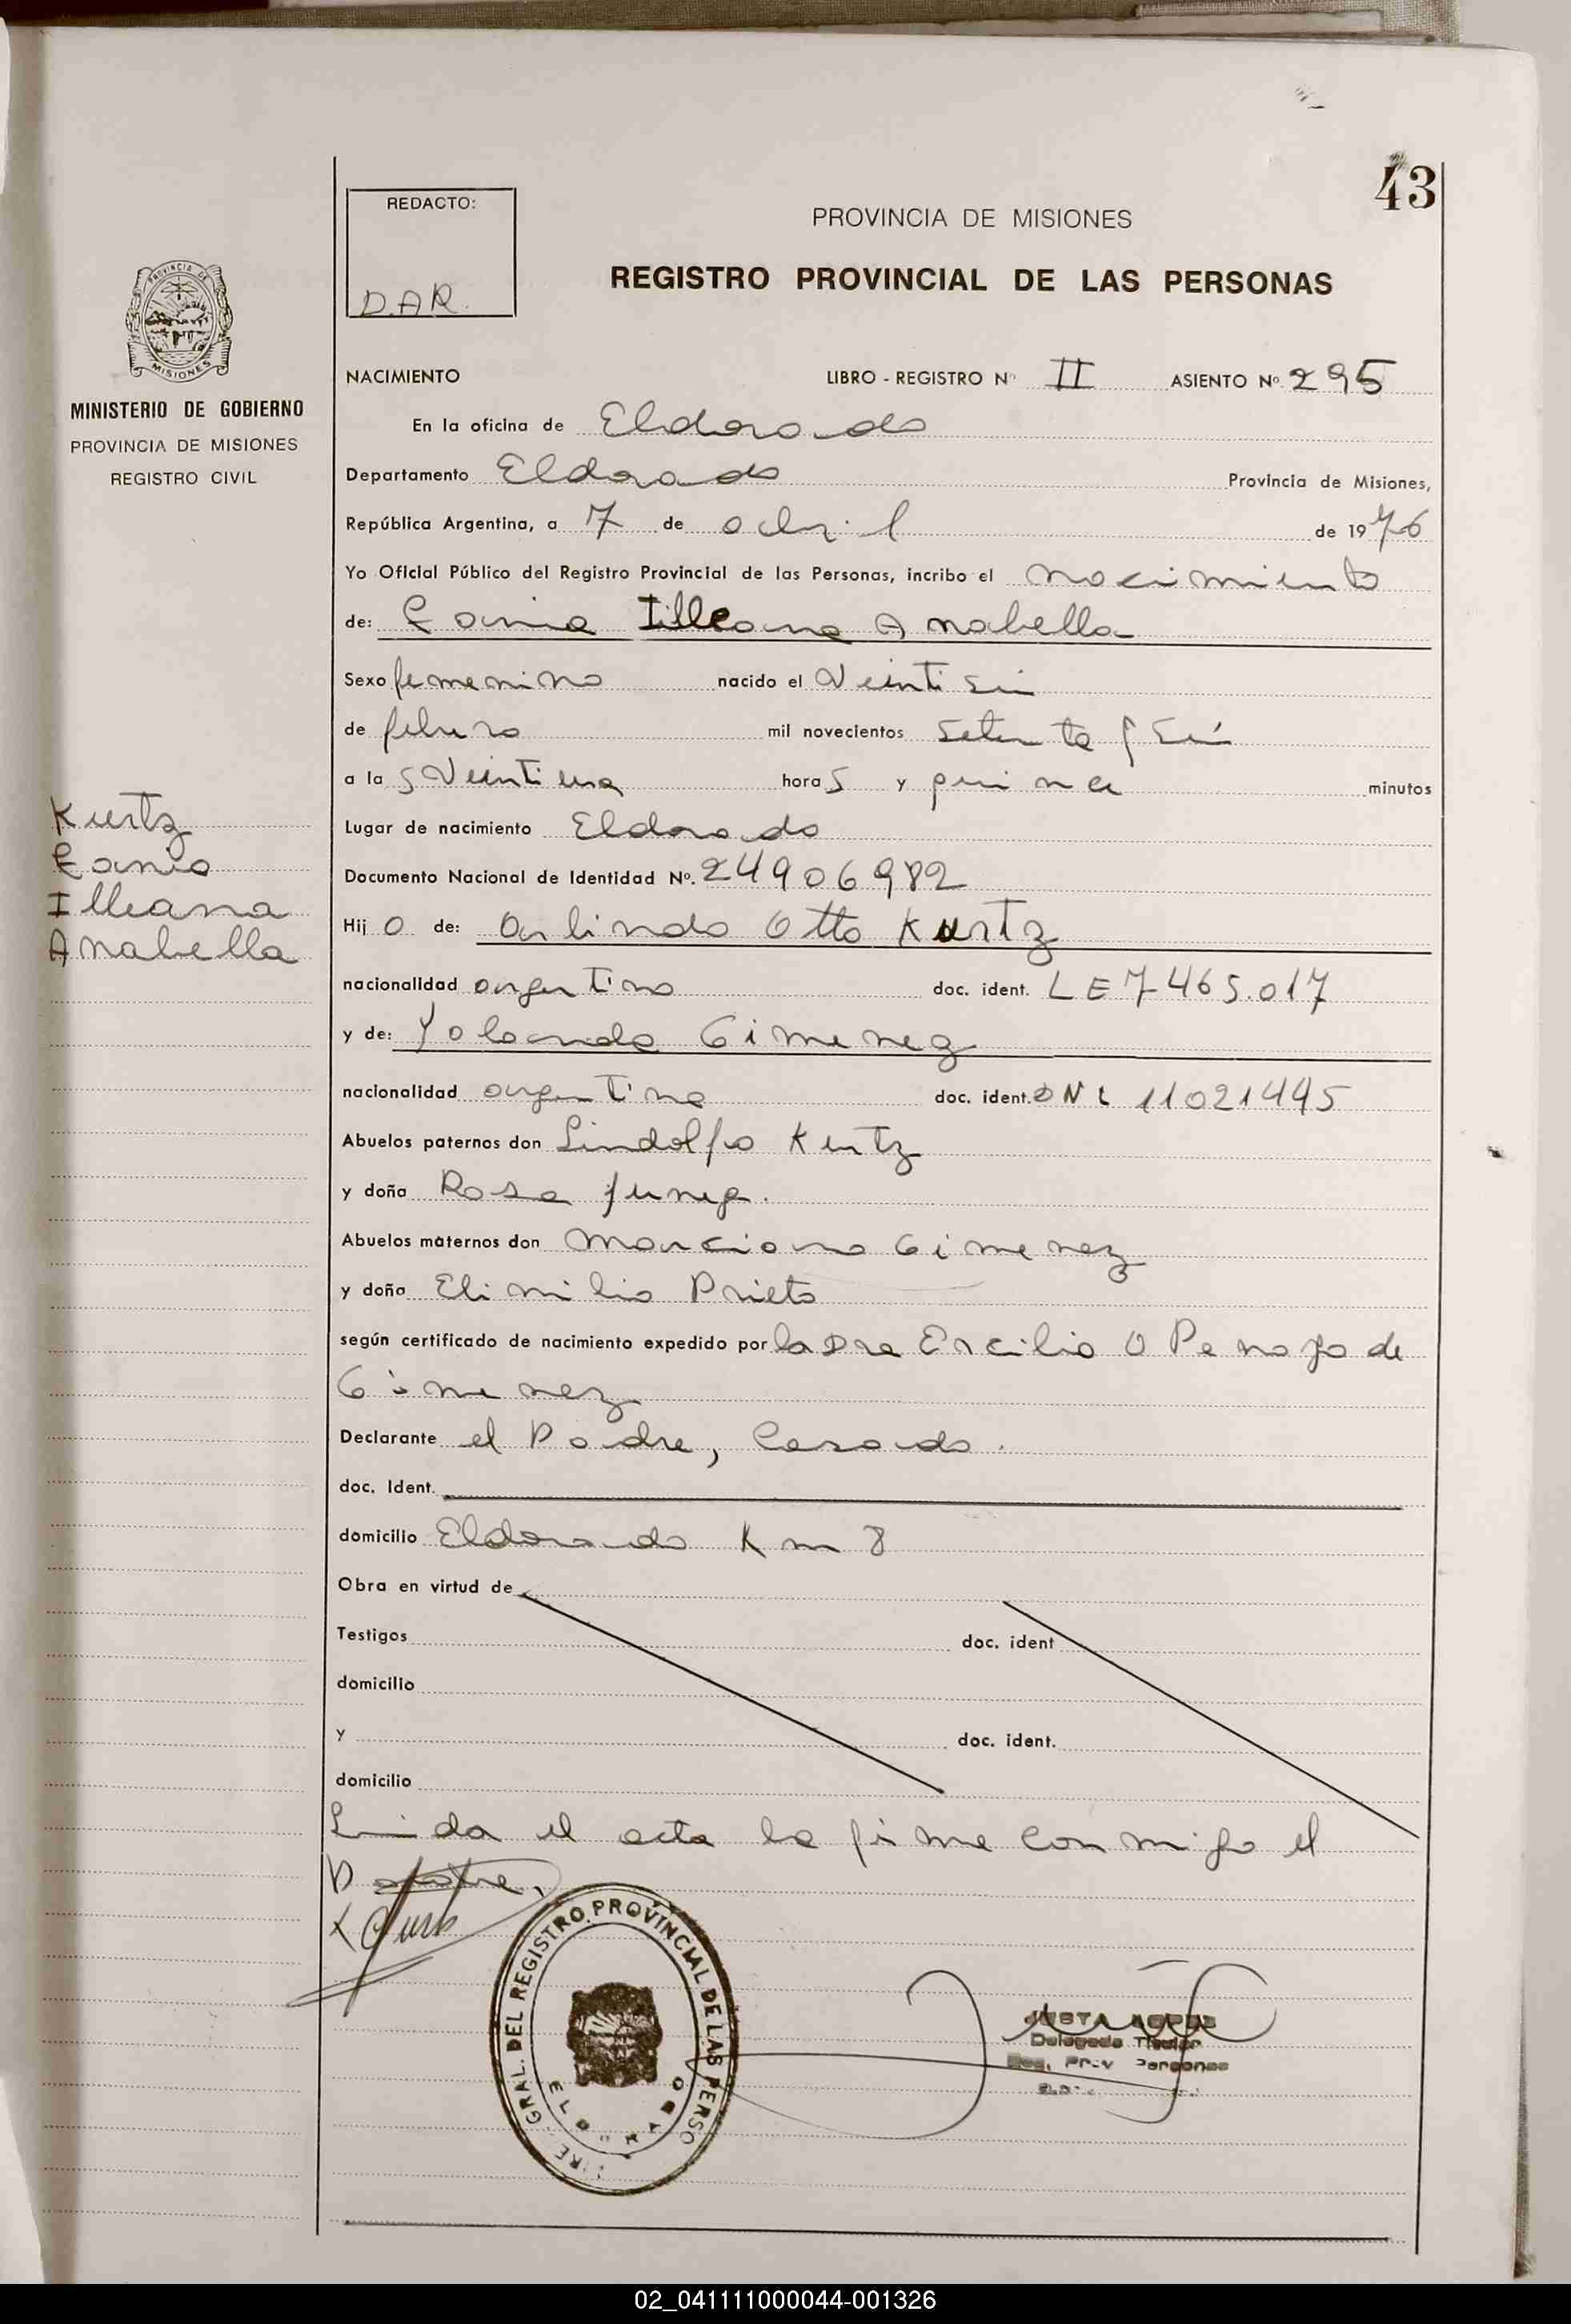 43
REDACTO:
D.A.R.
PROVINCIA DE MISIONES
REGISTRO PROVINCIAL DE LAS PERSONAS
PROVINCIA DE
MISIONES
MINISTERIO DE GOBIERNO
PROVINCIA DE MISIONES
REGISTRO CIVIL
NACIMIENTO LIBRO - REGISTRO Nº II ASIENTO Nº. 295
En la oficina de Eldorado
Departamento Eldorado Provincia de Misiones,
República Argentina, a 7 de abril de 1976
Yo Oficial Público del Registro Provincial de las Personas, incribo el nacimiento
de: Illeana Anabella
Sexo femenino nacido el Veintiseis
de febrero mil novecientos setenta y seis
a la s Veintiuna hora s y quince minutos
Kurtz
Illeana
Anabella
Lugar de nacimiento Eldorado
Documento Nacional de Identidad Nº. 24906982
Hij a de: Arlindo Otto Kurtz
nacionalidad argentino doc. ident. LE 7465.017
y de: Yolanda Gimenez
nacionalidad argentina doc. ident. DNI 11021445
Abuelos paternos don Lindolfo Kurtz
y doña Rosa
Abuelos maternos don Marciano Gimenez
y doña Prieto
según certificado de nacimiento expedido por la Dra Ercilia O Penayo de
Gimenez
Declarante el Padre, Casado.
doc. Ident.
domicilio Eldorado Km 8
Obra en virtud de
Testigos doc. ident
domicilio
y doc. ident.
domicilio
Leida el acta la firma conmigo el
Padre,
GRAL. DEL REGISTRO PROVINCIAL DE LAS PERSO
ELDORADO
Delegada Titular
Reg. Prov Personas
02_041111000044-001326